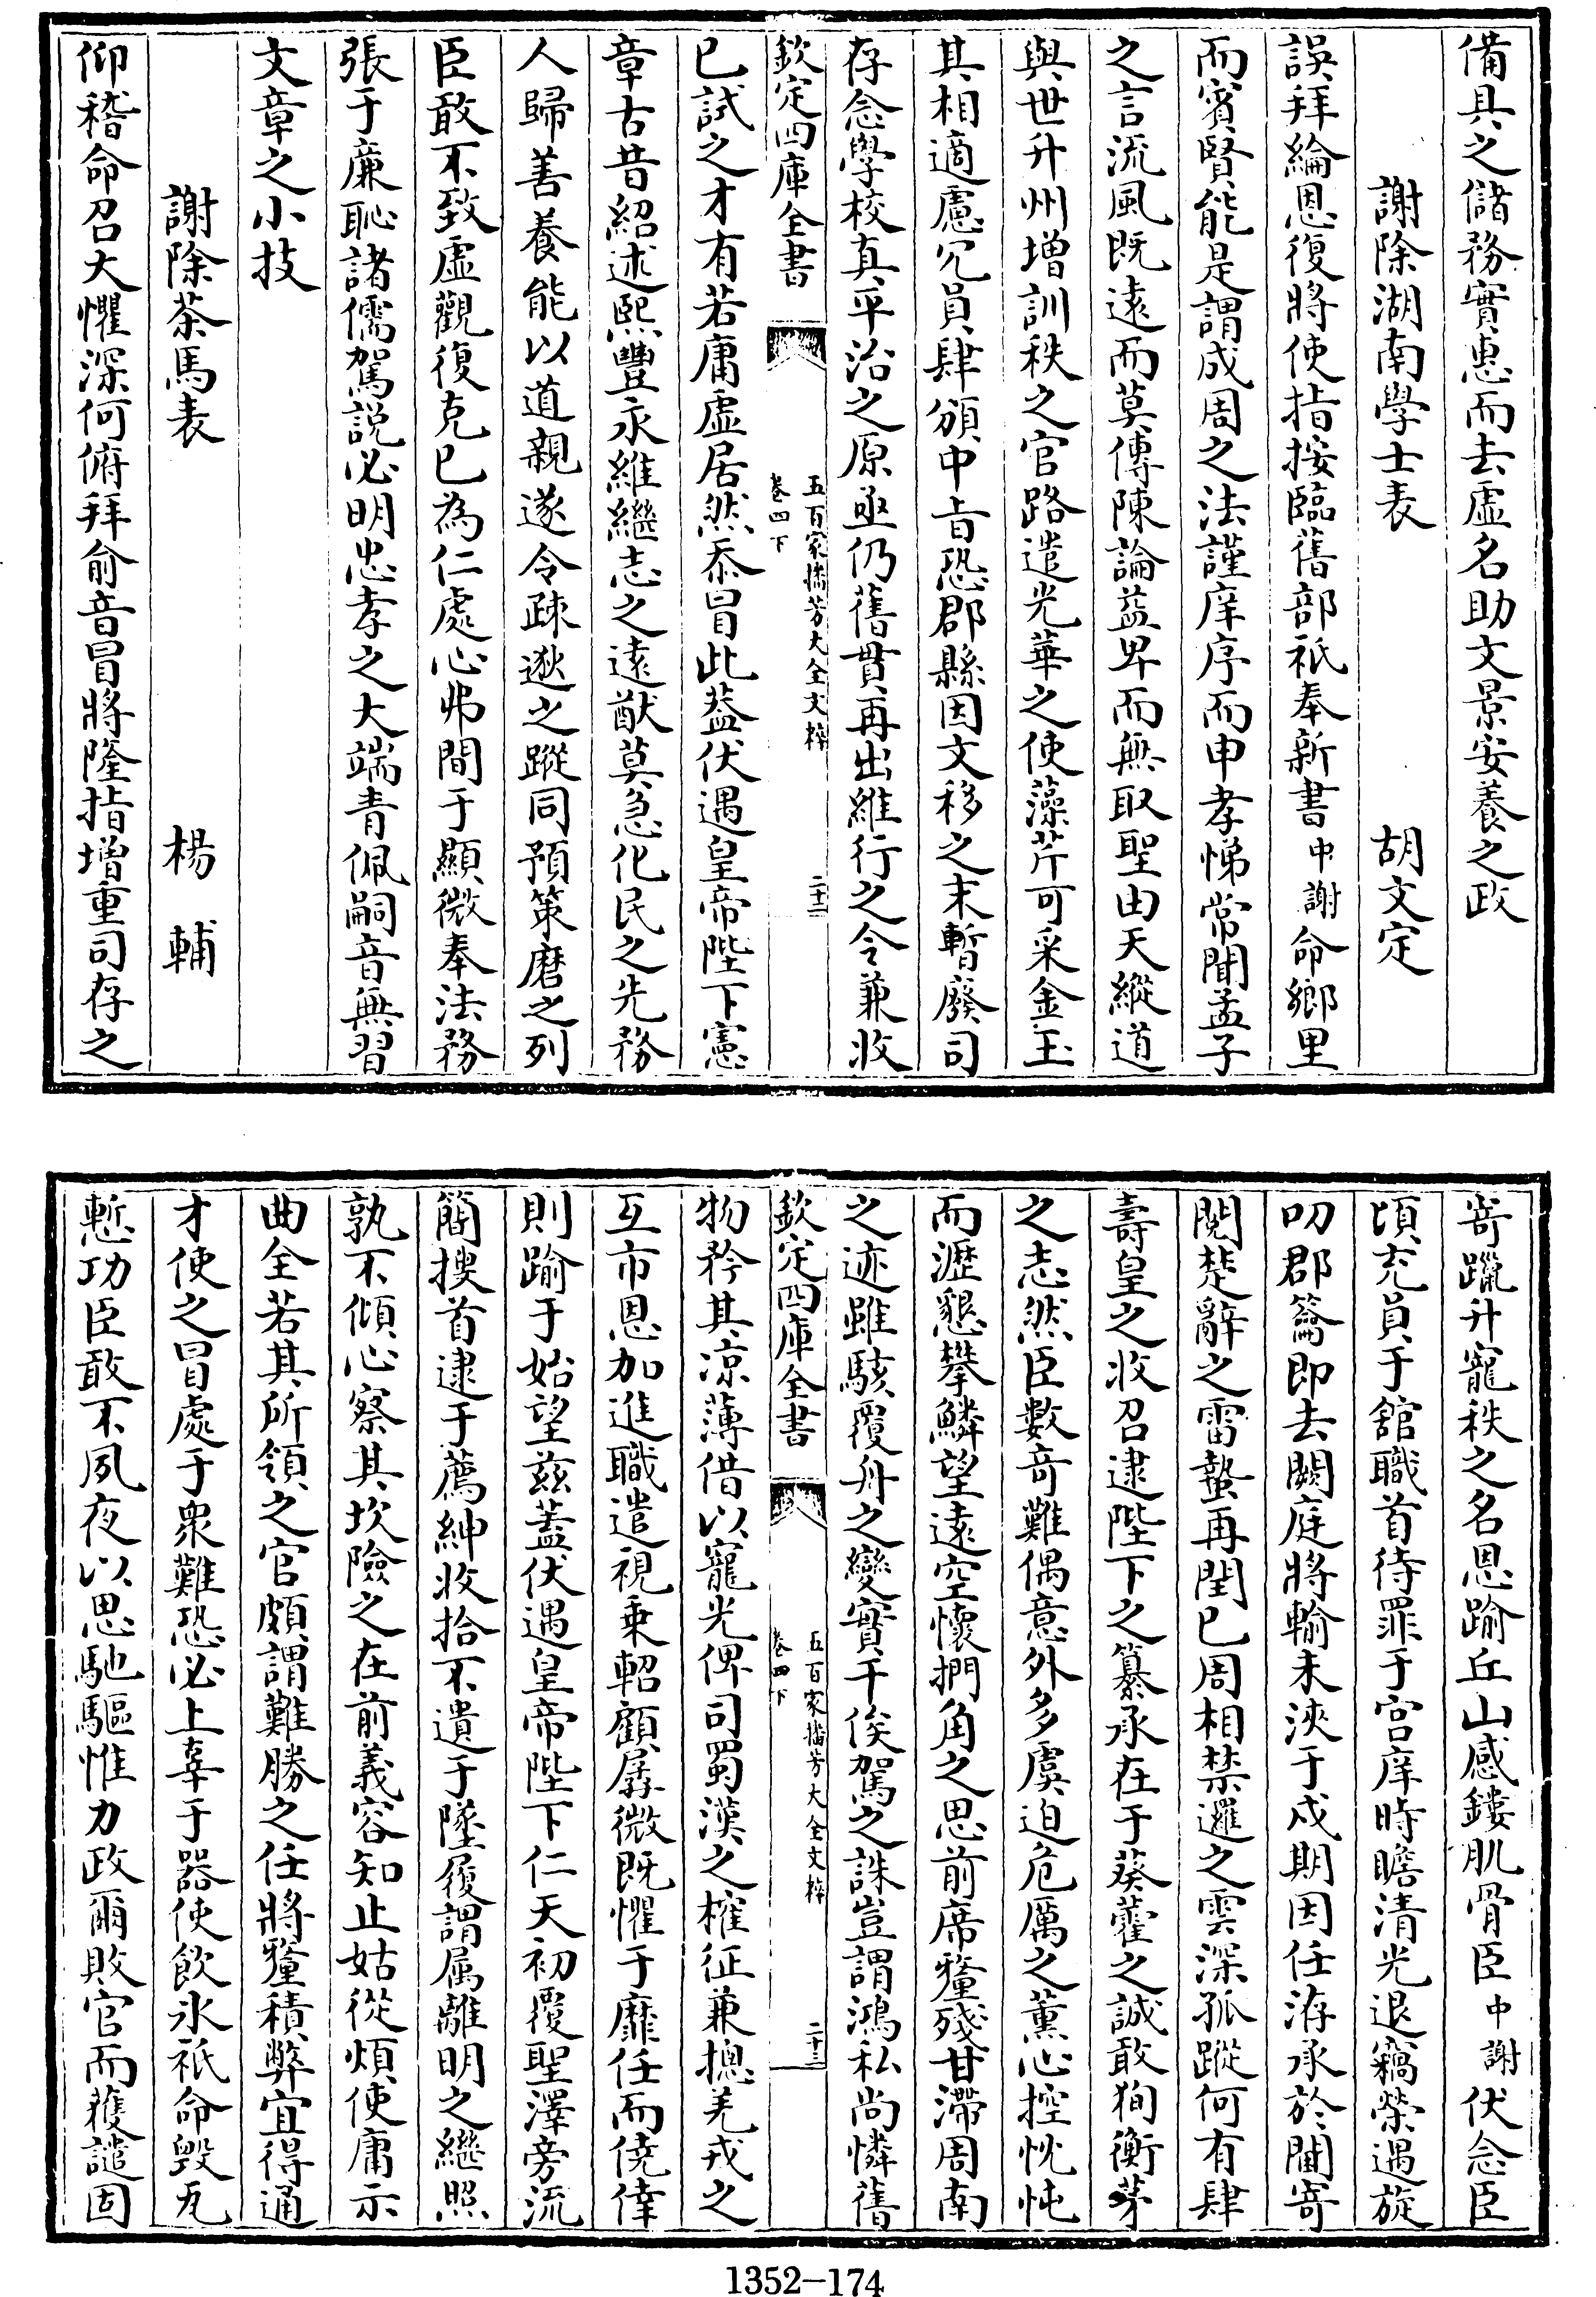 備具之儲務實惠而去虚名助文景安養之政
謝除湖南學士表 胡文定
誤拜綸恩復將使指按臨舊部祇奉新書中謝命鄉里
而賓賢能是謂成周之法謹庠序而申孝悌常聞孟子
之言流風既遠而莫傳陳論益卑而無取聖由天縱道
與世升州增訓秩之官路遣光華之使藻芹可采金玉
其相適慮冗員肆頒中旨恐郡縣因文移之末暫廢司
存念學校真平治之原亟仍舊貫再出維行之令兼收
欽定四庫全書 五百家播芳大全文粹 卷四下 二十二
已試之才有若庸虚居然忝冒此葢伏遇皇帝陛下憲
章古昔紹述熙豐永維繼志之遠猷莫急化民之先務
人歸善養能以道親遂令疎逖之蹤同預策磨之列
臣敢不致虚觀復克已為仁處心弗間于顯微奉法務
張于廉恥諸儒駕説必明忠孝之大端青佩嗣音無習
文章之小技
謝除茶馬表 楊輔
仰稽命召大懼深何俯拜俞音冒將隆指增重司存之
寄躐升寵秩之名恩踰丘山感鏤肌骨臣中謝伏念臣
頃充員于舘職首待罪于宫庠時瞻清光退竊榮遇旋
叨郡籥即去闕庭將輸未浹于戍期因任洊承於閫寄
閱楚辭之雷蟄再閏已周相禁邏之雲深孤蹤何有肆
壽皇之收召逮陛下之纂承在于葵藿之誠敢狥衡茅
之志然臣數竒難偶意外多虞迫危厲之薰心控忱恂
而瀝懇攀鱗望遠空懷捫角之思前席釐殘甘滯周南
之迹雖駭覆舟之變實干俟駕之誅豈謂鴻私尚憐舊
欽定四庫全書 五百家播芳大全文粹 卷四下 二十三
物矜其凉薄借以寵光俾司蜀漢之榷征兼摠羌戎之
互市恩加進職遣視乗軺顧孱微既懼于靡任而僥倖
則踰于始望兹蓋伏遇皇帝陛下仁天初覆聖澤旁流
簡搜首逮于薦紳收拾不遺于墜履謂属離明之繼照
孰不傾心察其坎險之在前義容知止姑從煩使庸示
曲全若其所領之官頗謂難勝之任將釐積弊宜得通
才使之冒處于衆難恐必上辜于器使飲氷祇命毁瓦
慙功臣敢不夙夜以思馳驅惟力政爾敗官而獲譴固
1352-174